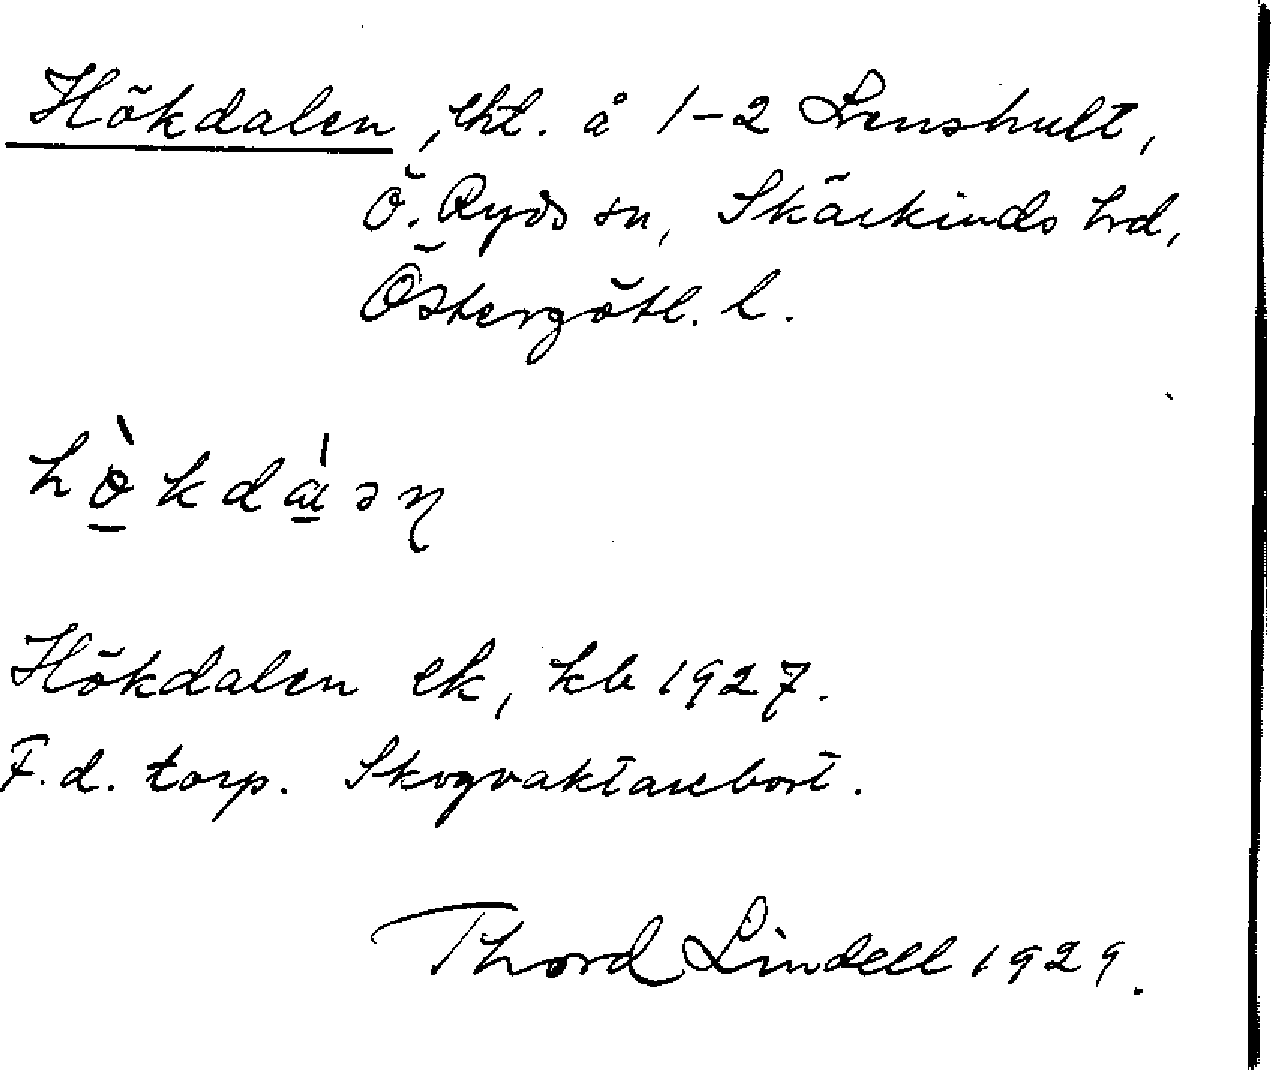 Hökdalen, lht. å 1-2 Svenshult,
Ö. Ryds sn, Skärkinds hrd,
Östergötl. l.
Hökdalen ek, kb 1927.
F.d. torp. Skogvaktarebost.
Thord Lindell 1929.